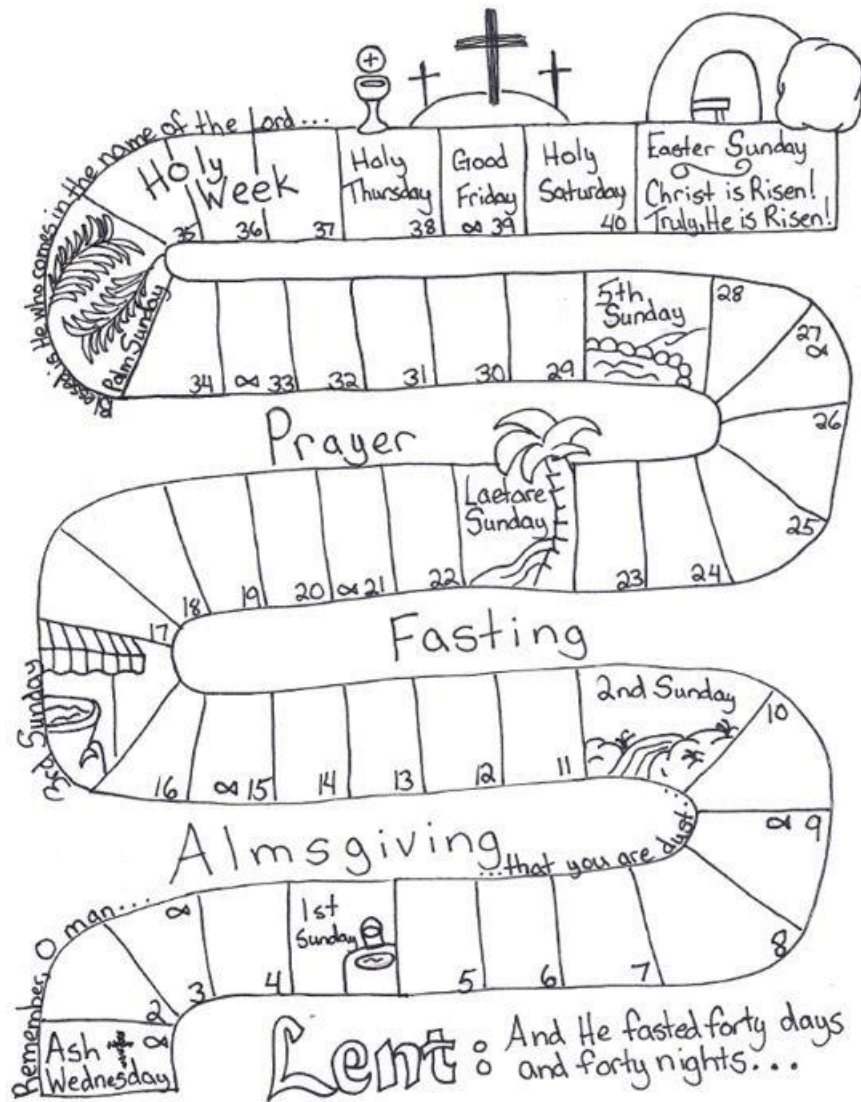 Blessed is He who comes in the name of the Lord...
Holy
Week
Holy
Thursday
Good
Friday
Holy
Saturday
Easter Sunday
Christ is Risen!
Truly, He is Risen!
35
36
37
38
39
40
Palm Sunday
5th
Sunday
28
27
34
33
32
31
30
29
26
Prayer
Laetare
Sunday
25
18
19
20
21
22
23
24
17
Fasting
3rd Sunday
2nd Sunday
10
16
15
14
13
12
11
9
Almsgiving
...that you are dust...
Remember, O man...
1st
Sunday
8
2
3
4
5
6
7
Ash
Wednesday
Lent:
And He fasted forty days
and forty nights...